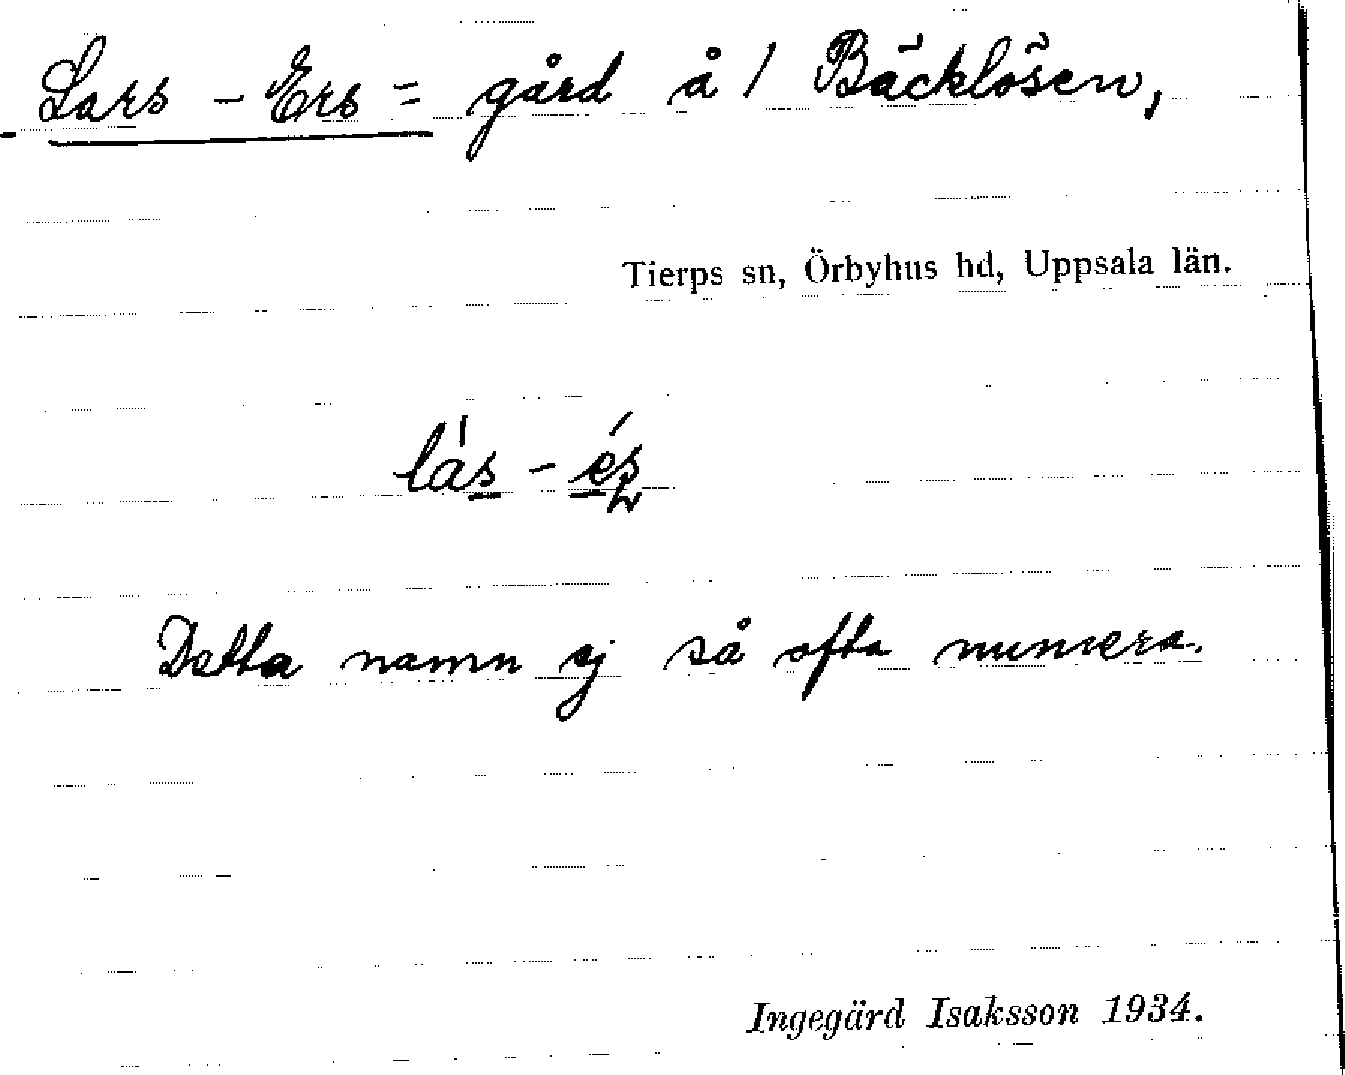 Lars - Ers = gård å / Bäcklösen,
Tierps sn, Örbyhus hd, Uppsala län.
lás - és
Detta namn ej så ofta numera.
Ingegärd Isaksson 1934.